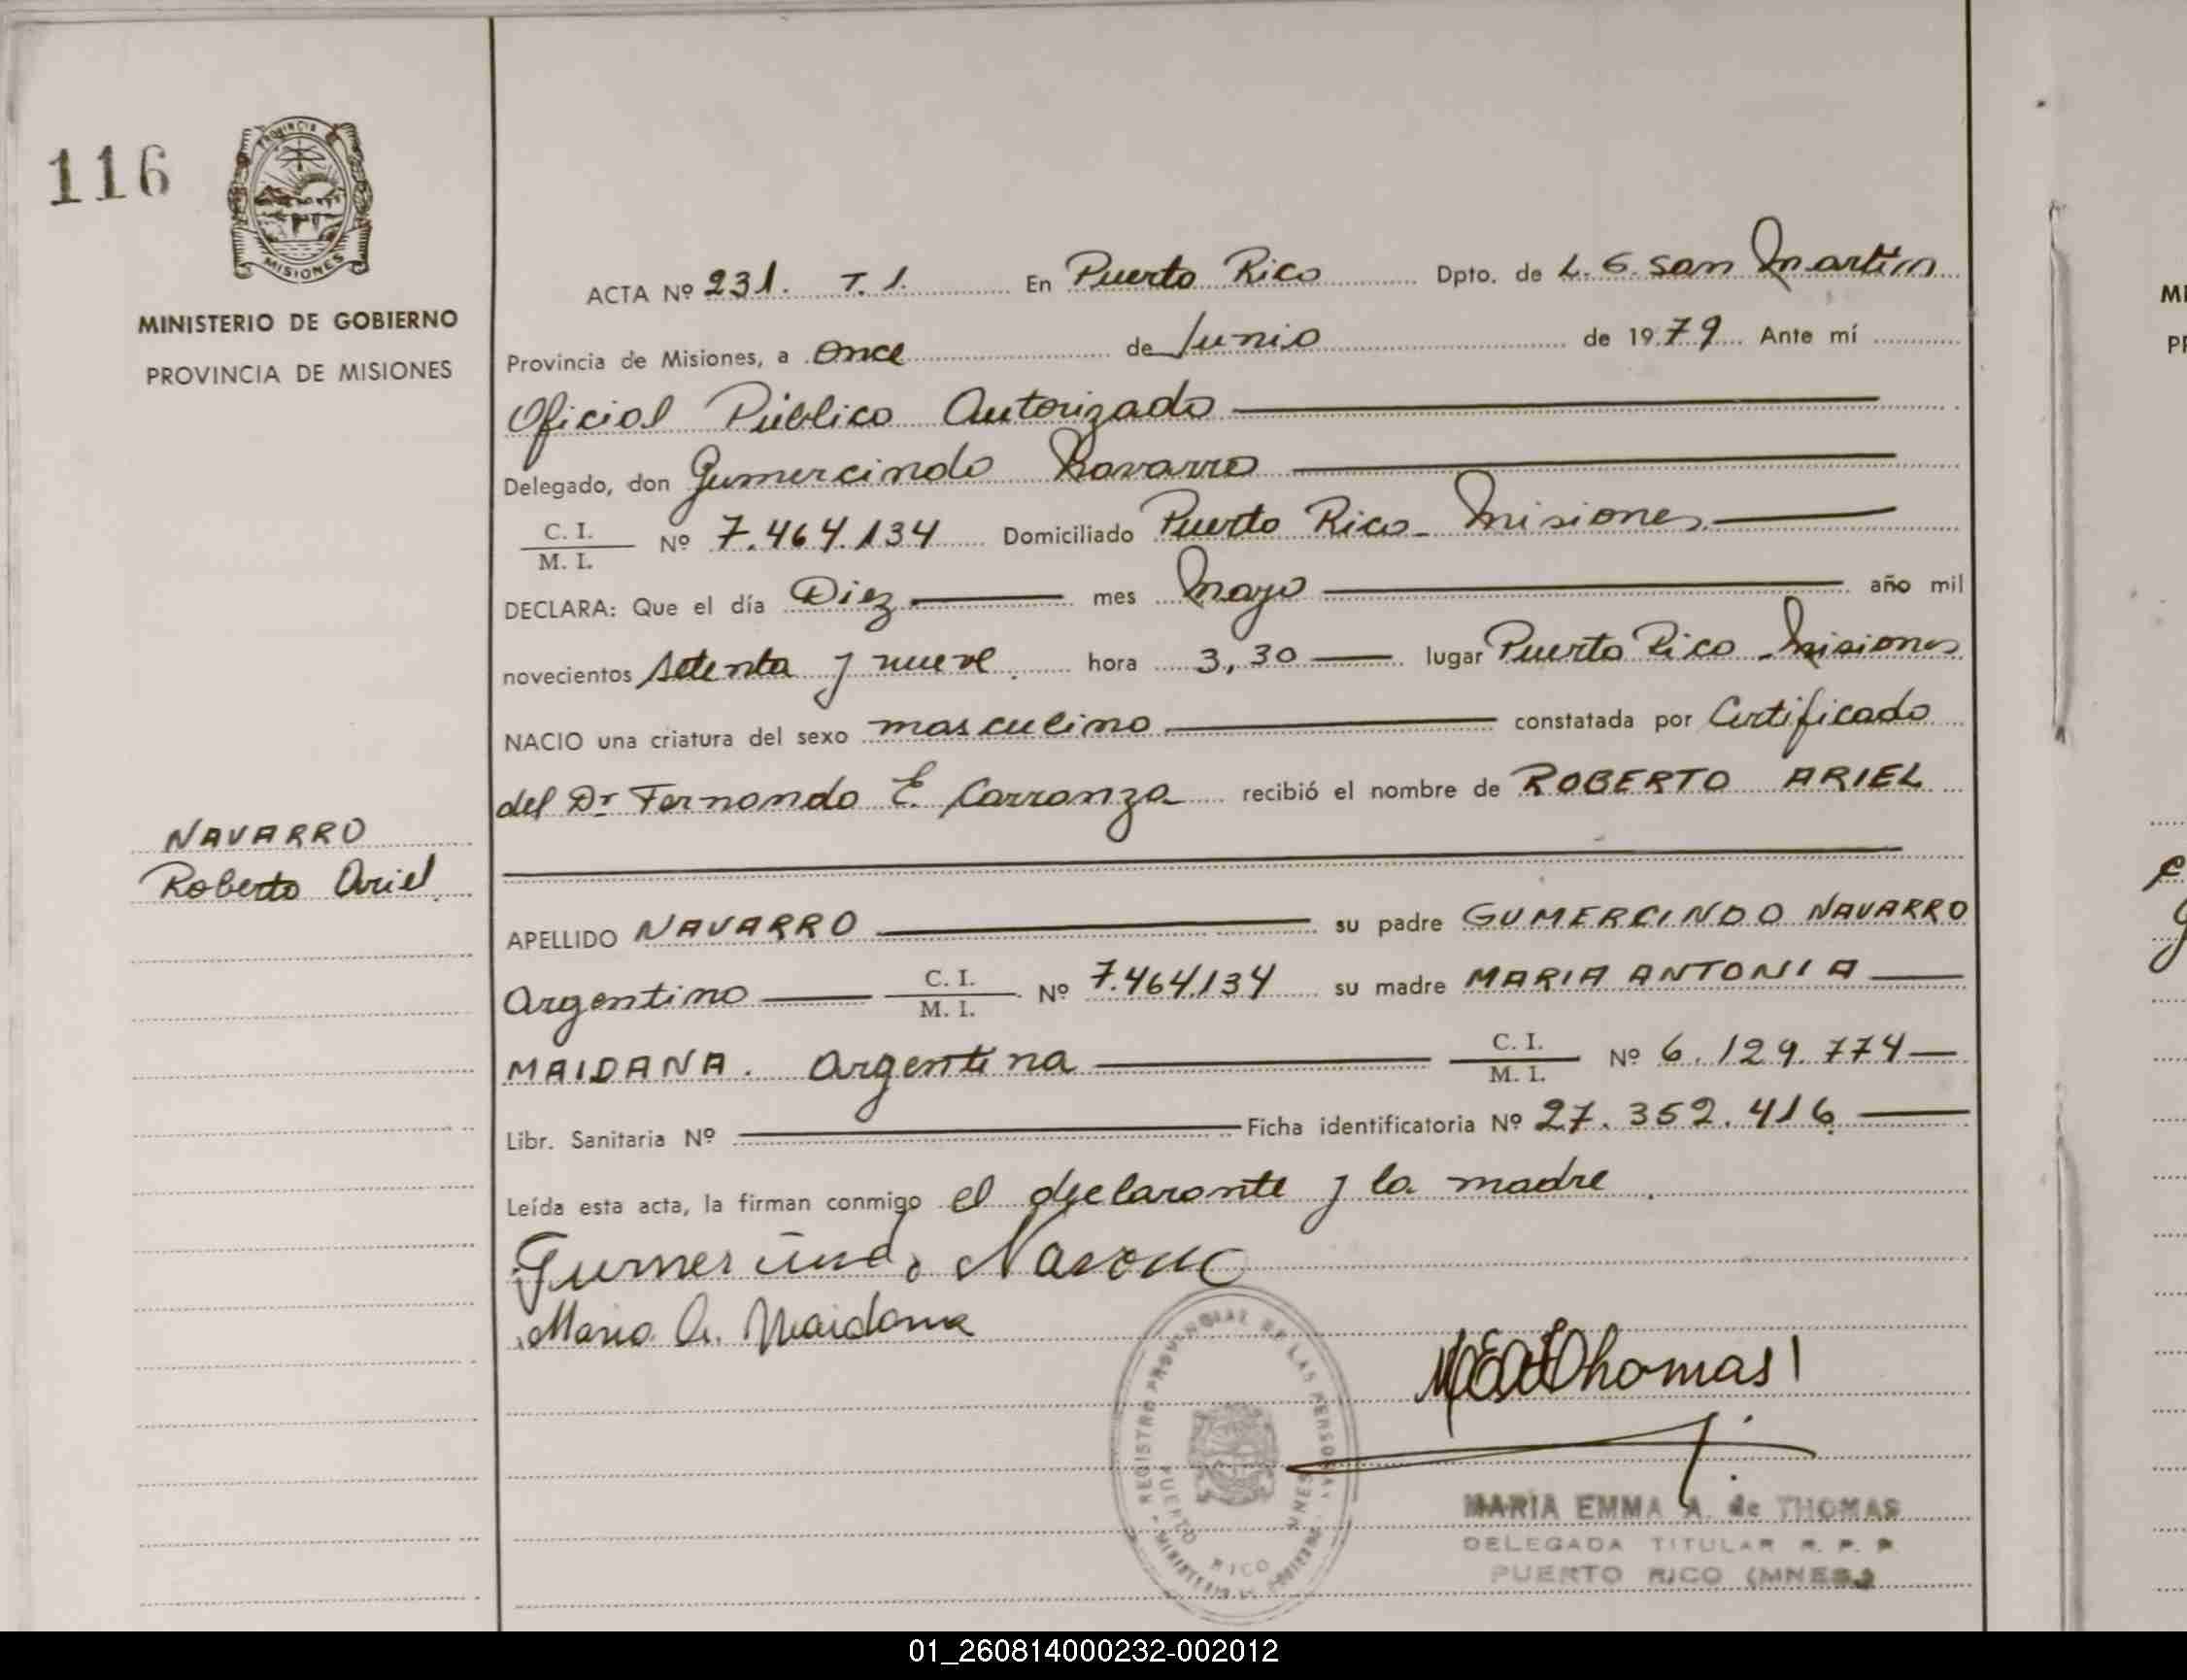 116
PROVINCIA
MISIONES
MINISTERIO DE GOBIERNO
PROVINCIA DE MISIONES
NAVARRO
Roberto Ariel
ACTA Nº 231. T. 1. En Puerto Rico Dpto. de L. G. San Martin
Provincia de Misiones, a Once de Junio de 1979 Ante mí
Oficial Público Autorizado
Delegado, don Gumercindo Navarro
C. I. / M. I. Nº 7.464.134 Domiciliado Puerto Rico - Misiones
DECLARA: Que el día Diez mes Mayo año mil
novecientos setenta y nueve. hora 3,30 lugar Puerto Rico - Misiones
NACIO una criatura del sexo masculino constatada por Certificado
del Dr Fernando E. Carranza recibió el nombre de ROBERTO ARIEL
APELLIDO NAVARRO su padre GUMERCINDO NAVARRO
Argentino C. I. / M. I. Nº 7.464.134 su madre MARIA ANTONIA
MAIDANA. Argentina C. I. / M. I. Nº 6.129.774
Libr. Sanitaria Nº Ficha identificatoria Nº 27.352.416
Leída esta acta, la firman conmigo el declarante y la madre.
Gumercindo Navarro
Maria A. Maidana
Thomas
REGISTRO PROVINCIAL DE LAS PERSONAS
PUERTO RICO MNES
MINISTERIO DE GOBIERNO
MARIA EMMA A. de THOMAS
DELEGADA TITULAR R. P. P.
PUERTO RICO (MNES.)
01_260814000232-002012